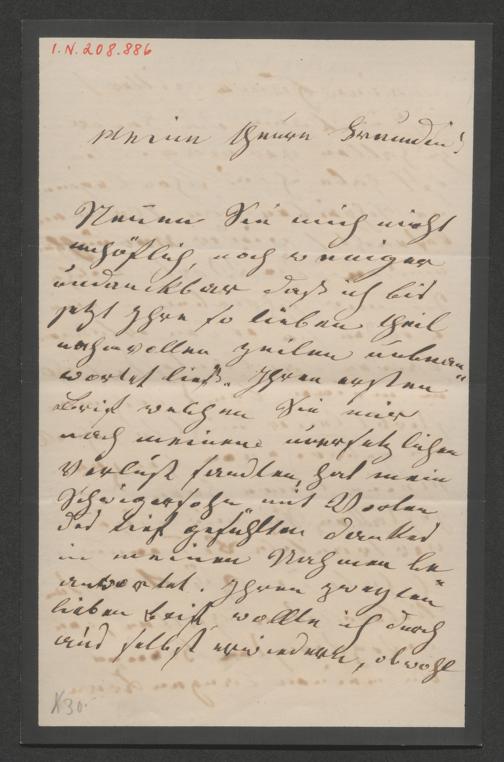 I.N. 208.886
Meine theure Freundin!
Nennen Sie mich nicht
unhöflich, noch weniger
undanckbar daß ich bis
jetzt Ihre so lieben theil
nahmvollen Zeilen unbean
wortet ließ. Ihren ersten
Brief welchen Sie mir
nach meinem unersetzlichen
Verlust sandten, hat mein
Schwigersohn mit Worten
des tief gefühlten Dankes
in meinen Nahmen be
antwortet. Ihren zweyten
lieben Brief wollte ich durch
aus selbst erwiedern, obwohl